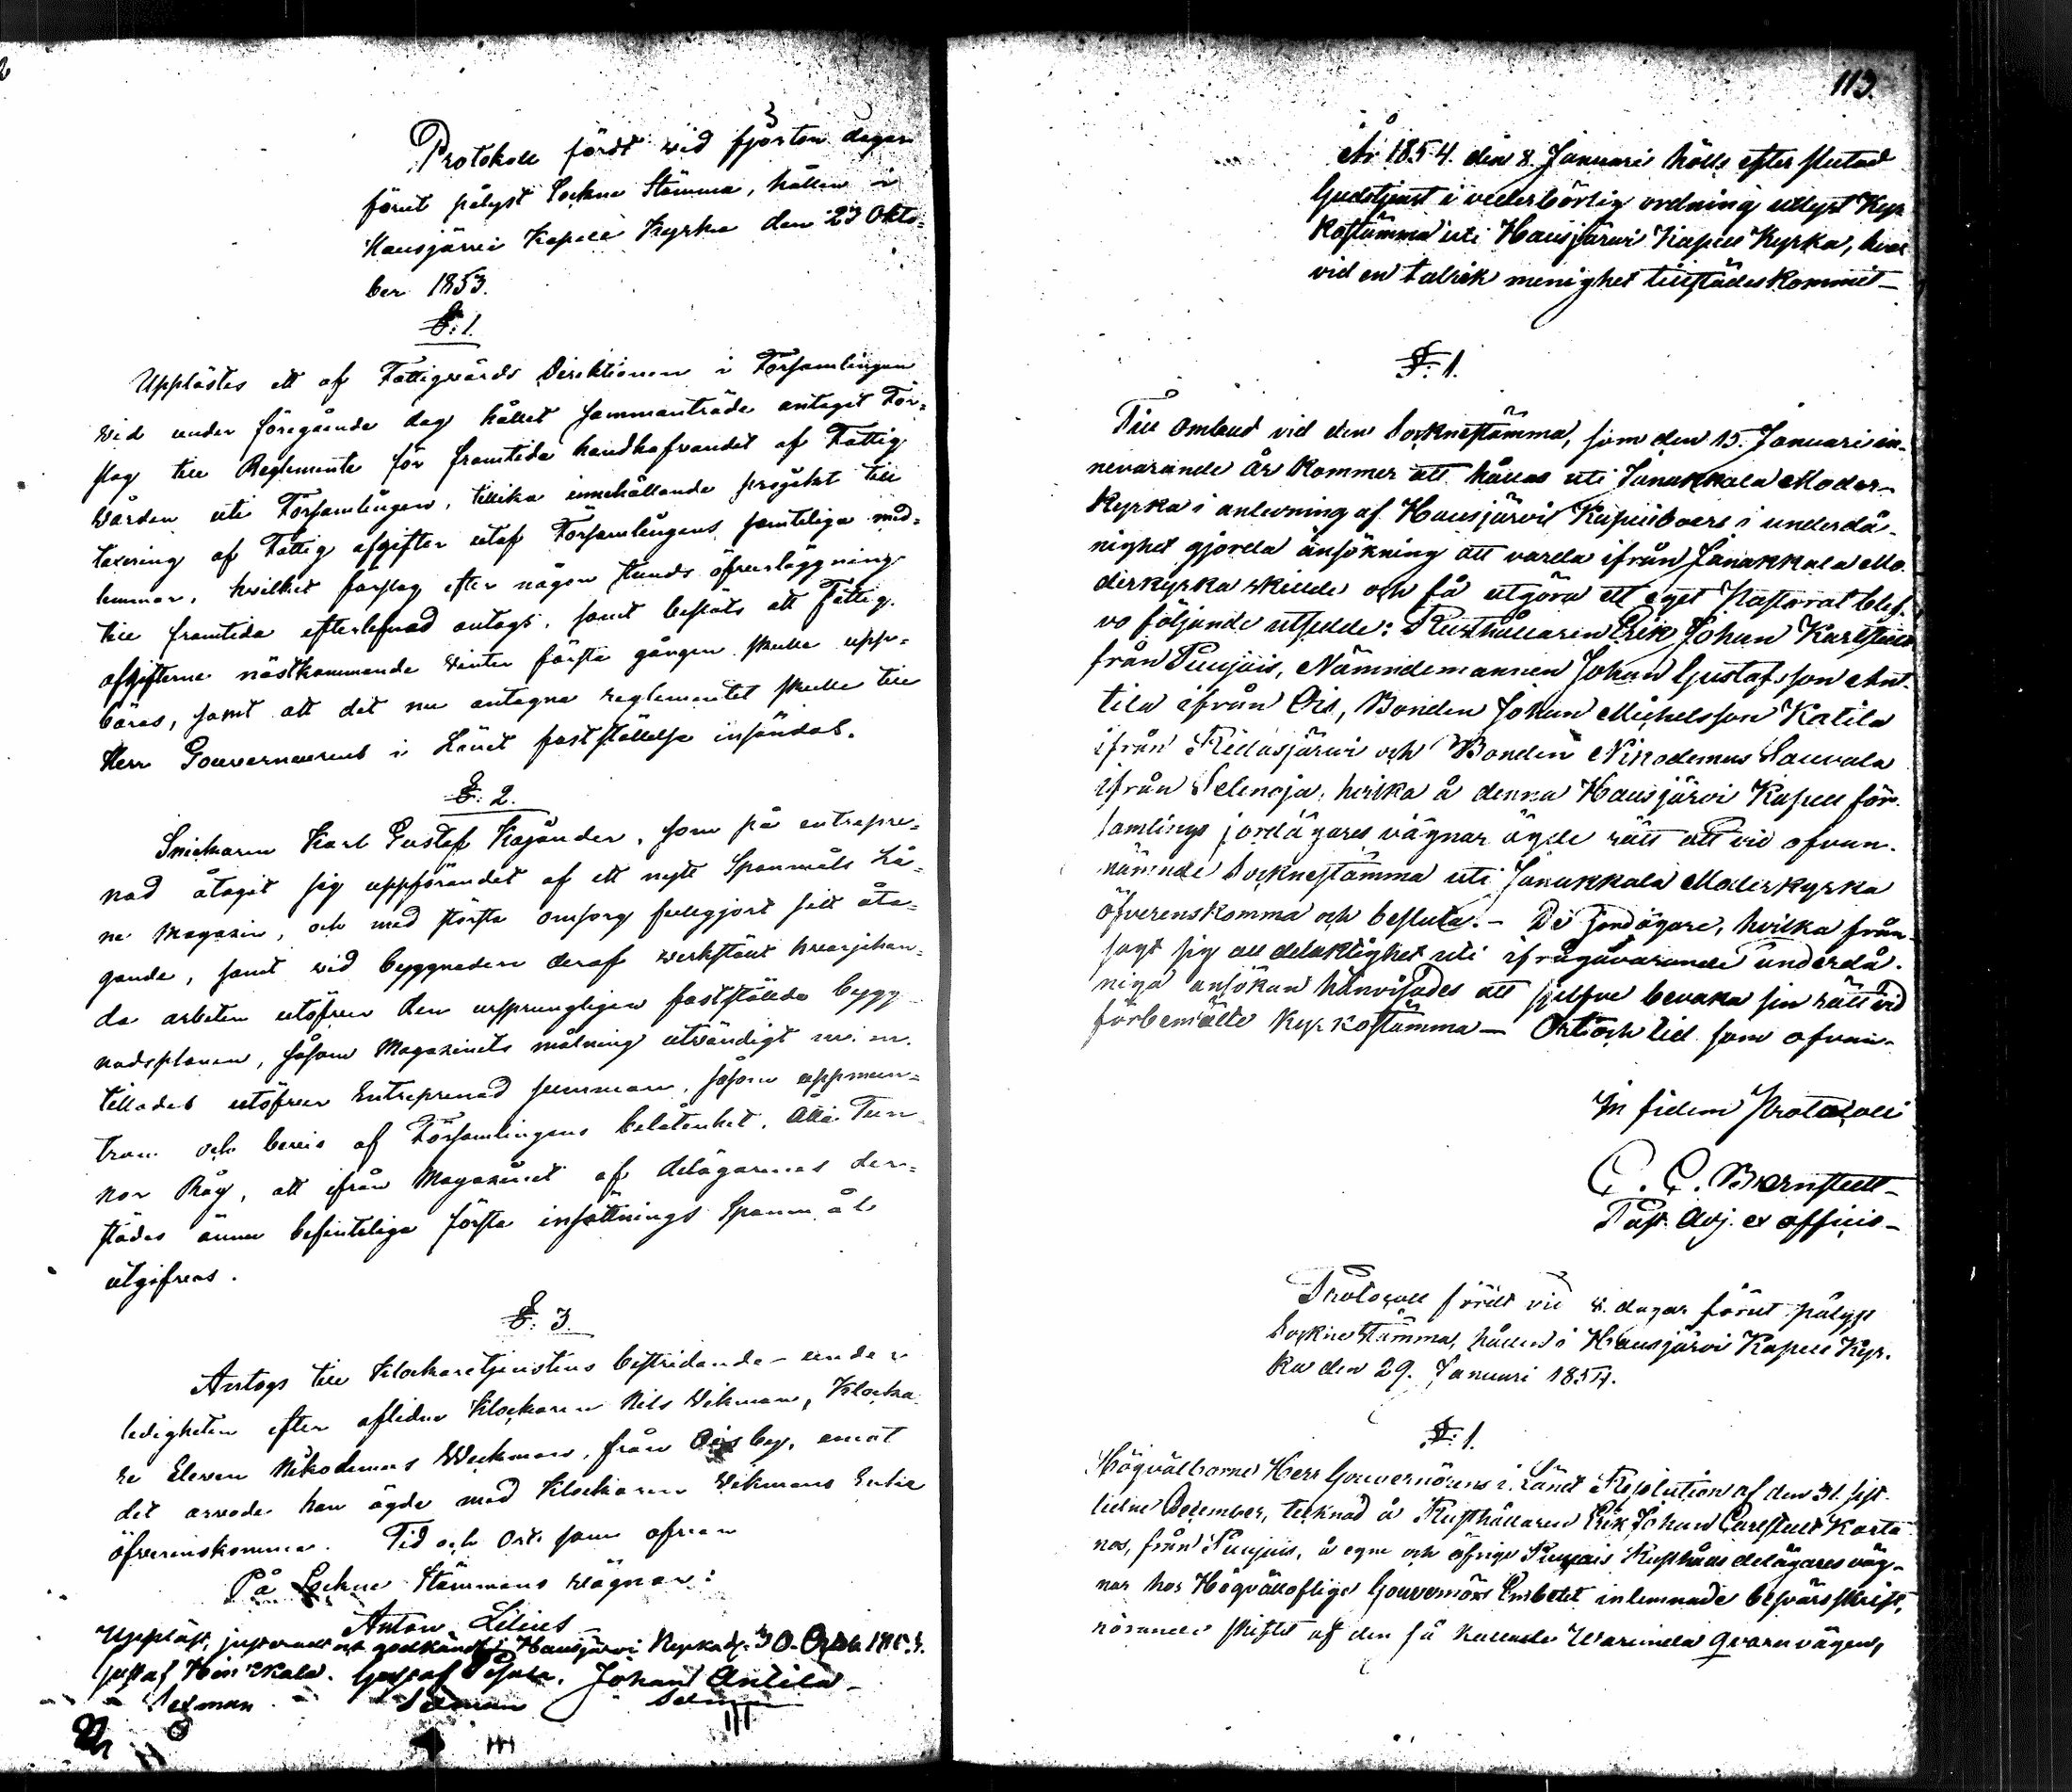 Protokoll fördt wid fjorton dagar
förut pålyst Sockne Stämma, hållen i
Hausjärwi Kapell Kyrka den 23 Okto=
ber 1853.
§. 1.
Upplästes ett af Fattigwårds Direktionen i Församlingen
wid under föregående dag hållet sammanträde antaget För=
slag till Reglemente för framtida handhafvandet af Fattig
wården uti Församlingen, tillika innehållande projekt till
taxering af Fattig afgifter utaf Församlingens samteliga med=
lemmar, hwilket förslag efter någon stunds öfverläggning
till framtida efterlefnad antogs, samt beslöts att Fattig.
afgifterne nästkommande winter första gången skulle upp=
bäras, samt att det nu antagna reglementet skulle till
Herr Gouverneurens i Länet fastställelse insändas.
§. 2.
Snickaren Karl Gustaf Kajander, som på entrepre=
nad åtagit sig uppförandet af ett nytt Spanmåls Lå=
ne Magazin, och med största omsorg fullgjort sitt åta=
gande, samt wid byggnaden deraf werkstält hwarjehan=
da arbeten utöfver den ursprungligen fastställda bygg
nadsplanen, såsom Magazinets målning utwändigt m. m.
tillades utöfver Entreprenad summan, såsom uppmun=
tran och bewis af Församlingens belåtenhet, Åtta Tun
nor Råg, att ifrån Magazinet af delägarenas der=
städes ännu befinteliga första insättnings Spanmål
utgifwas.
§. 3.
Antogs till Klockaretjenstens bestridande under
ledigheten efter aflidne Klockaren Nils Wikman, Klocka
re Eleven Nikodemus Weckman, från Ois by, emot
det arwode han ägde med Klockaren Wikmans Enka
öfverenskomma. Tid och Ort som ofvan
På Sockne Stämmans wägnar:
Anton Lilius
Uppläst, justeradt och godkändt i Hausjärvi Kyrka d. 30. Octob. 1853.
Gustaf Heinekala. Gustaf Johan Antila
Sexman Sexman Sexman
113.
År 1854. den 8. Januari hölls efter slutad
Gudstjenst i vederbörlig ordning utlyst Kyr
kostämma uti Hausjärwi Kapell Kyrka, hvar
vid en talrik menighet tillstädeskommit_
§. 1.
Till ombud vid den Socknestämma, som den 15. Januari in-
nevarande år kommer att hållas uti Janakkala Moder-
kyrka i anledning af Hausjärvi Kapellboers i underdå-
nighet gjorda ansökning att varda ifrån Janakkala Mo
derkyrka skilde och få utgöra ett eget Pastorat blef.
vo följande utsedde: Rusthållaren Erik Johan Karlstedt
från Puujois, Nämndemannen Johan Gustafsson An-
tila ifrån Ois, Bonden Johan Michelsson Katila
ifrån Ridasjärwi och Bonden Nikodemus Sauvala
ifrån Selenoja, hvilka å denna Hausjärvi Kapell för
samlings jordägares vägnar ägde rätt att vid ofvan-
nämnde Socknestämma uti Janakkala Moderkyrka
öfverenskomma och besluta. - De jordägare, hvilka från
sagt sig all delaktighet uti ifrågavarande underdå-
niga ansökan hänvisades att sjelfve bevaka sin rätt vid
förbemälte Kyrkostämma _ Ort och tid som ofvan-
In fidem Protocolli
C. C. Bernstedt_
Past. Adj. ex officio_
Protocoll fördt vid 8. dagar förut pålyst
Socknestämma, hållen i Hausjärvi Kapell Kyr.
ka den 29. Januari 1854.
§. 1.
Högvälborne Herr Gouvernörens i Länet Resolution af den 31. sist-
lidne December, tecknad å Rusthållaren Erik Johan Carlstedt Karta
nos, från Puujois, å egne och öfrige Puujois Rusthålls delägares väg-
nar hos Högvälloflige Gouvernörs Embetet inlemnade besvärsskrift,
rörande skiftet af den så kallade Warunda Qvarnvägen,